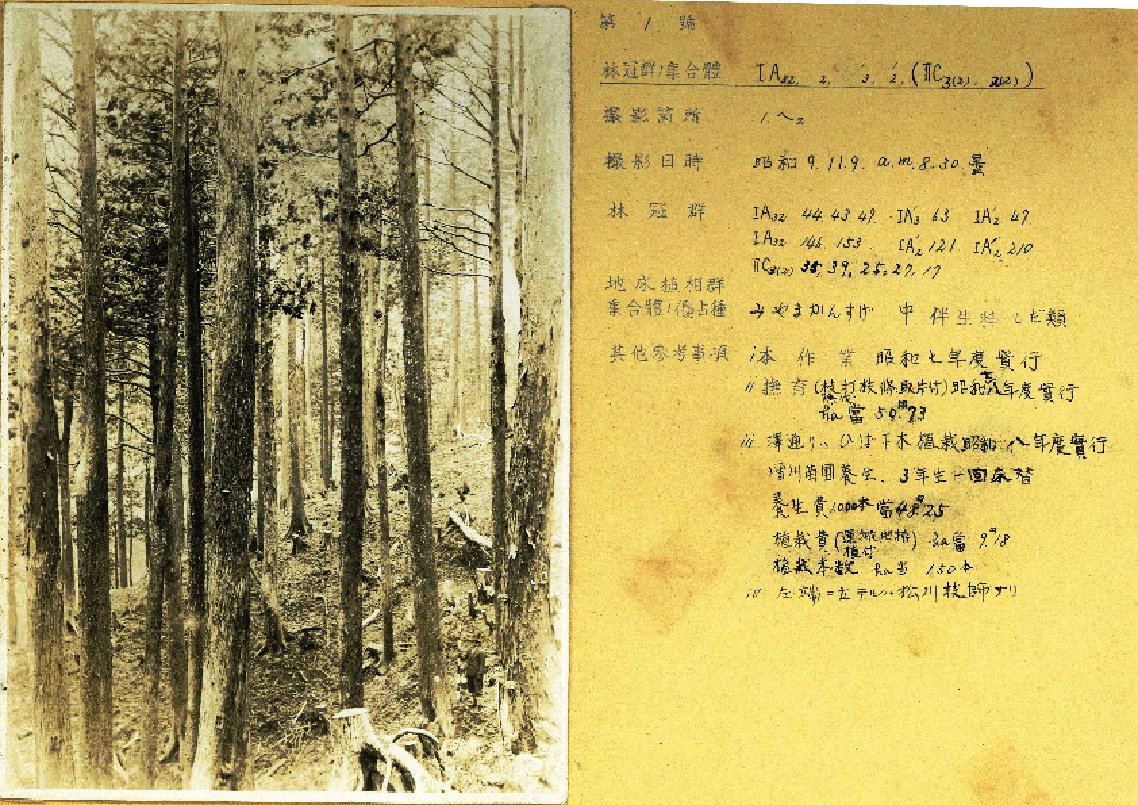 第 1 號
林冠群ノ集合體 IA32. 2. ′3. ′2. (ⅡC3(2). 2(2))
撮影箇所 1 へ2
撮影日時 昭和 9. 11. 9. a.m. 8.30. 曇
林冠群 IA32 44. 43. 49. IA′3 63 IA′2 47.
IA32 146. 153. IA′2 121. IA′2 210
ⅡC3(2) 35, 39, 25, 27, 17
地床植相群
集合體ノ優占種 みやまかんすげ 中 伴生種 しだ類
其他參考事項 i 本作業 昭和七年度實行
ii 撫育(枝打枝條取片付)昭和八年度實行
ha當 50.73
iii 樺通し ひば干木植栽昭和八年度實行
苗圃養生、3年生一回床替
養生費1000本當48.25
植栽費( 植付) ha當 9.18
植栽本數 ha当 150本
iv 左端ニ立テルハ松川技師ナリ